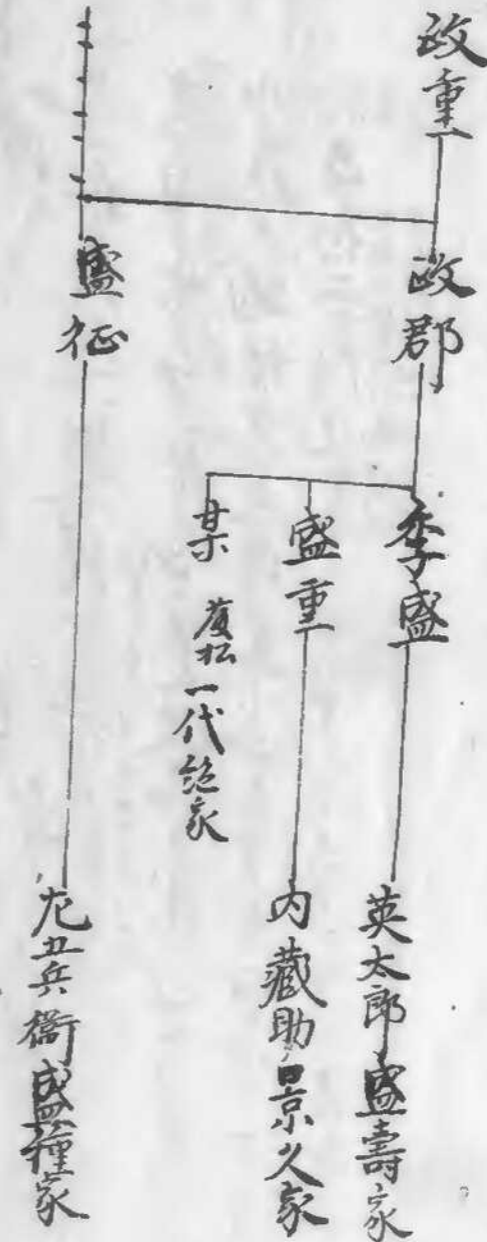 政重
政郡
季盛
英太郎盛壽家
盛重
内藏助景久家
某
一代絶家
盛征
五兵衞盛種家